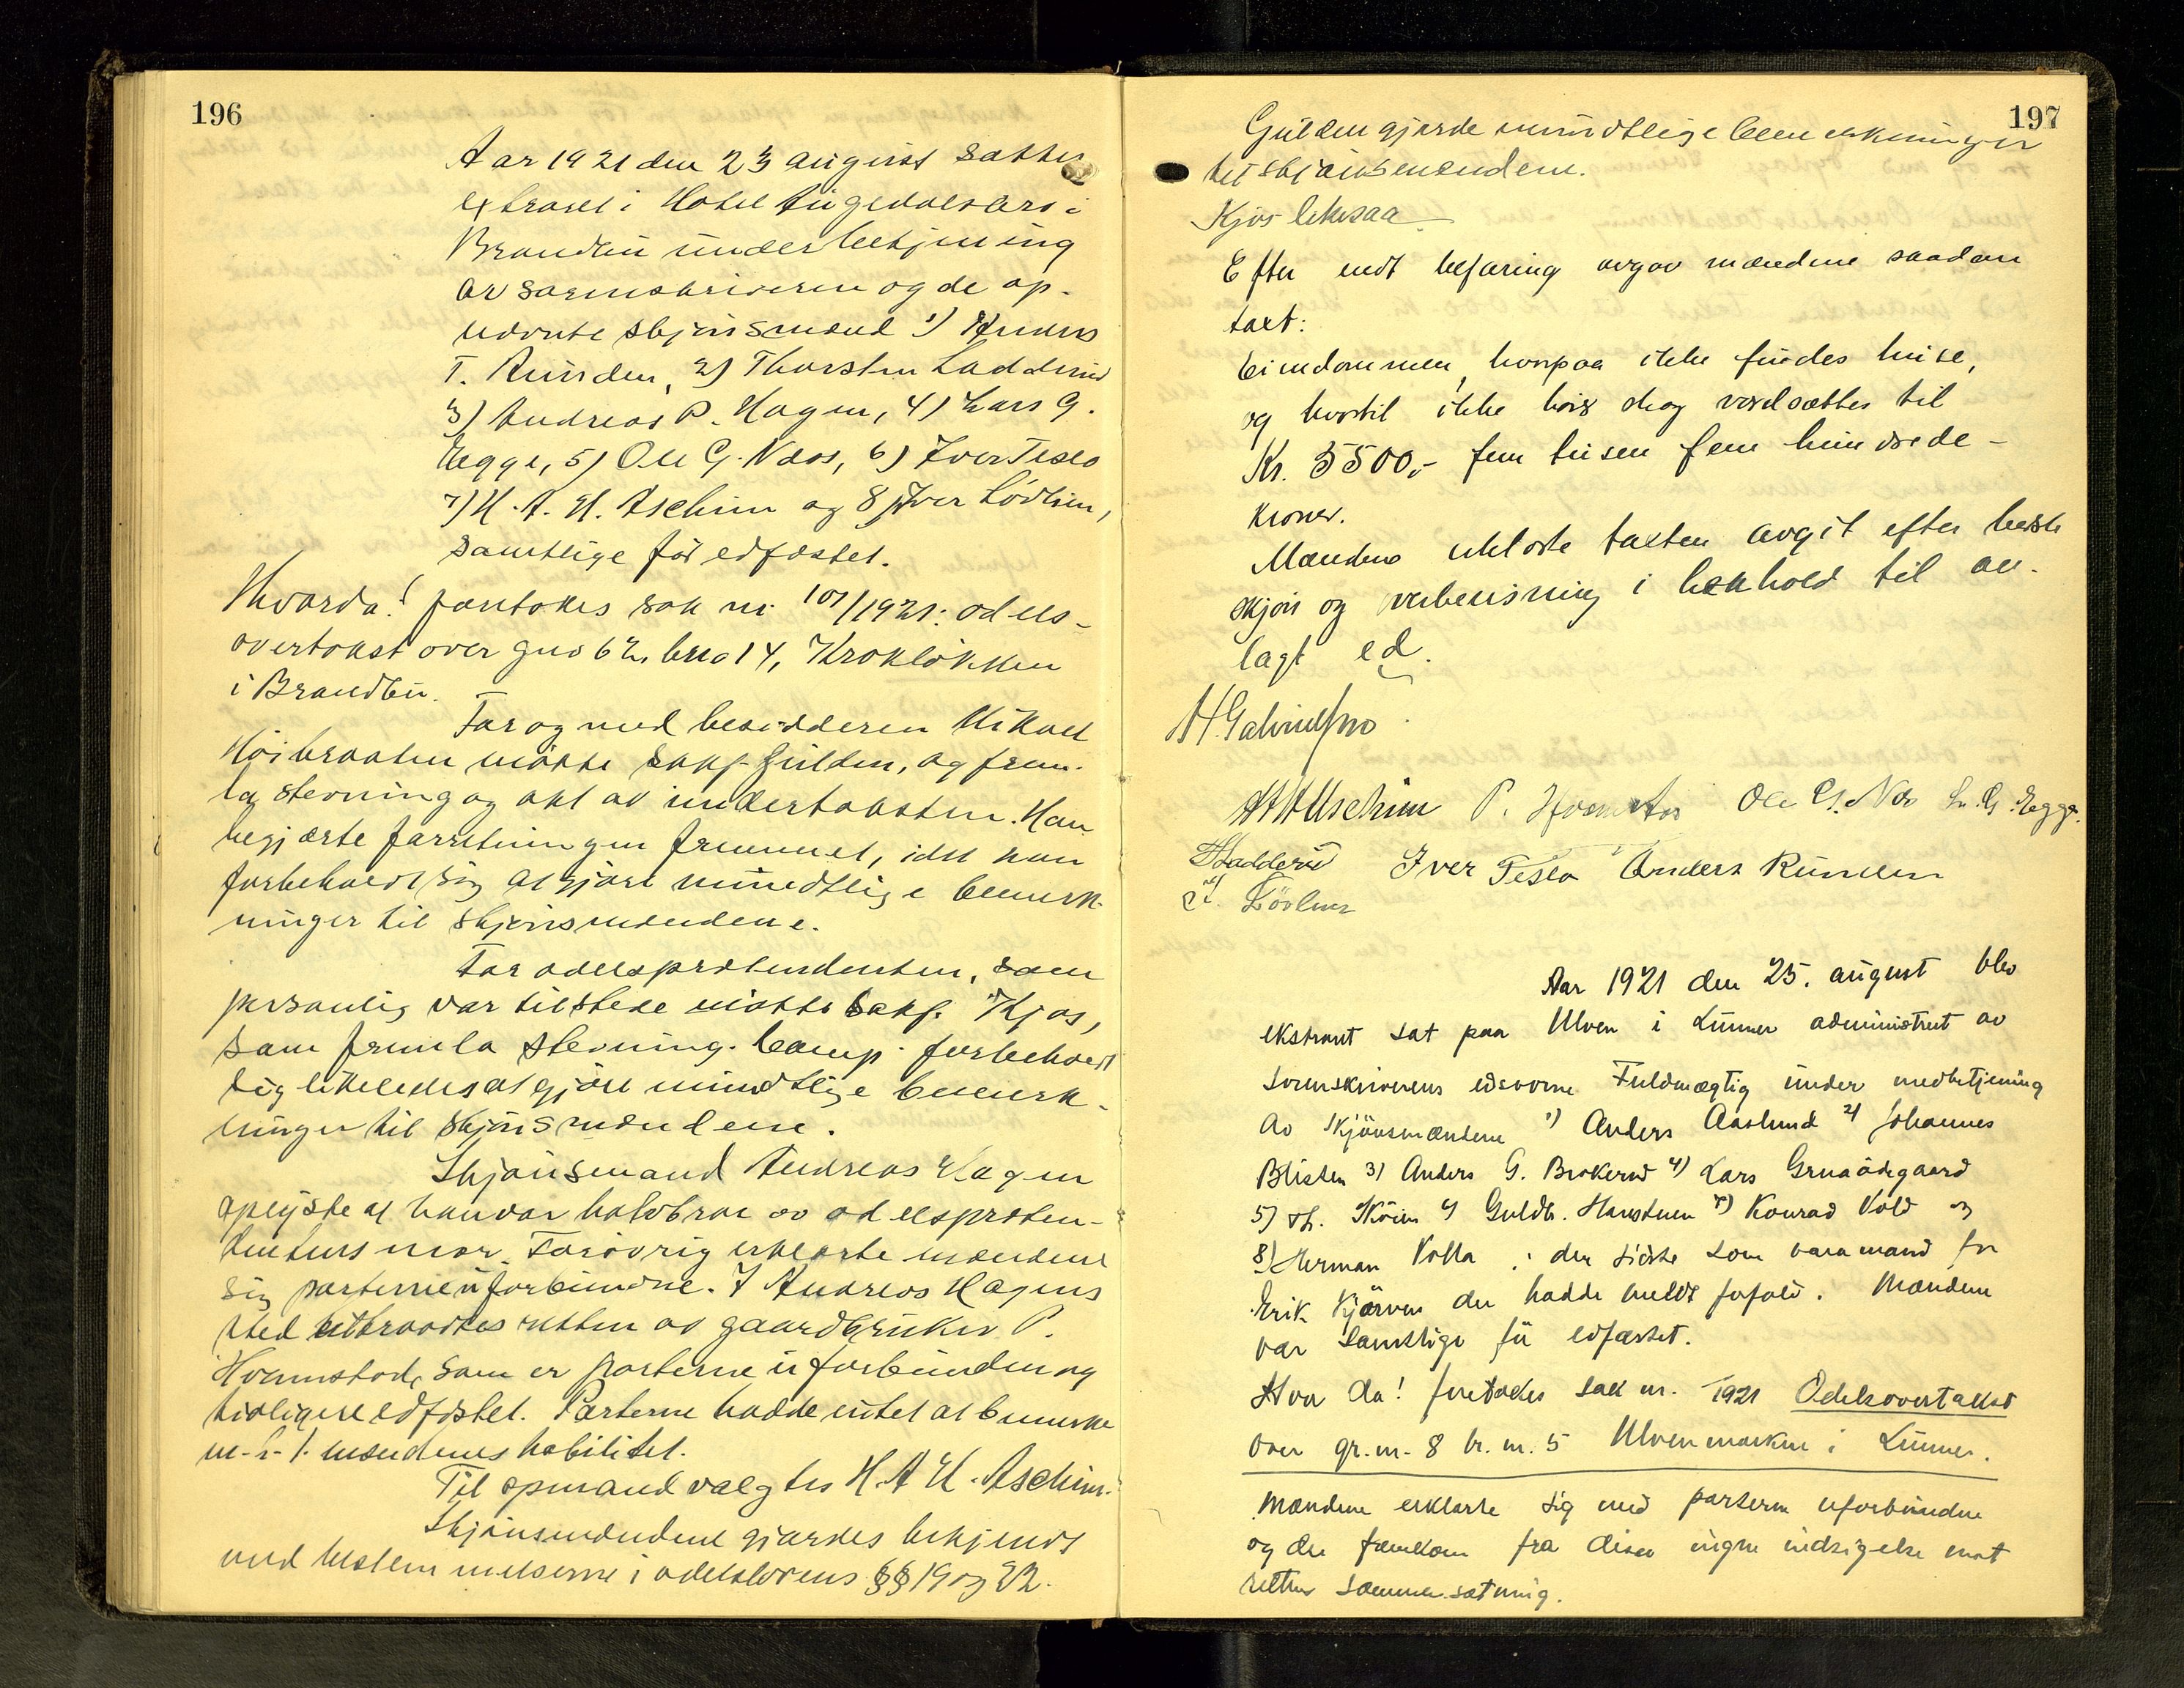 196
Aar 1921 den 23 august sattes
extraret i Hotel Augedalsbro i
Brandbu under betjening
av sorenskriveren og de op-
nævnte skjønsmænd 1) Anders
T. Ründen, 2) Thorsten Ladderud
3) Andreas P. Hagen, 4) Lars G.
Egge, 5) Ole G. Næs, 6) Iver Teslo
7) H. A. H. Aschim og 8) Iver Løvlien,
samtlige før edfæstet.
Hvorda! foretokes sak nr 101/1921: odels-
overtakst over gno 62, bno 14, Krokløkken
i Brandbu.
For og med besidderen Mikael
Høibraaten møtte sakf. Gulden, og frem-
la stevning og akt av undertaksten. Han
begjærte forretningen fremmet, idet han
forbeholdt sig at gjøre mundtlige bemerk-
ninger til skjønsmændene.
For odelsprætendenten, som
personlig var tilstede møtte sakf. Kjos,
som fremla stevning. Comp. forbeholdt
sig likeledes at gjøre mundtlige bemerk-
ninger til skjønsmændene.
Skjønsmand Andreas Hagen
oplyste at han var halvbror av odelspræten-
dentens mor. Forøvrig erklærte mændene
sig parterne uforbundne. I Andreas Hagens
sted tiltraadtes retten av gaardbruker P.
Hvamstad, som er parterne uforbunden og
tidligere edfæstet. Parterne hadde intet at bemerke
m. h. t. mændenes habilitet.
Til opmand valgtes H. A. H. Aschim.
Skjønsmændene gjordes bekjendt
med bestemmelserne i odelslovens §§ 19 og 22.
197
Gulden gjorde mundtlige bemerkninger
til skjønsmændene.
Kjos likesaa.
Efter endt befaring avgav mændene saadan
taxt:
Eiendommen, hvorpaa ikke findes huse,
og hvortil ikke hører skog værdsættes til
Kr. 5500,- fem tusen fem hundrede -
kroner.
Mændene erklærte taxten avgit efter bedste
skjøn og overbevisning i henhold til av-
lagt ed.
H. Gabrielsen
H A H Aschim P. Hvamstad Ole G. Næs L. G. Egge.
T Ladderud Iver Teslo Anders Ründen
I. Løvlien
Aar 1921 den 25. august blev
ekstraret sat paa Ulven i Lunner administrert av
sorenskriverens edsvorne Fuldmægtig under medbetjening
av skjønsmændene 1) Anders Aaslund 2) Johannes
Blisten 3) Anders G. Brokerud 4) Lars Gruaødegaard
5) Th. Skøien 6) Guldb. Harestuen 7) Konrad Vold og
8) Herman Volla : den sidste som varamand for
Erik Kjørven der hadde meldt forfald. Mændene
var samtlige før edfæstet.
Hvor da! foretokes sak nr. 1921 Odelsovertakst
over gr. nr. 8 br. nr. 5 Ulvenmarken i Lunner.
Mændene erklærte sig med parterne uforbundne
og der fremkom fra disse ingen indsigelse mot
rettens sammensætning.